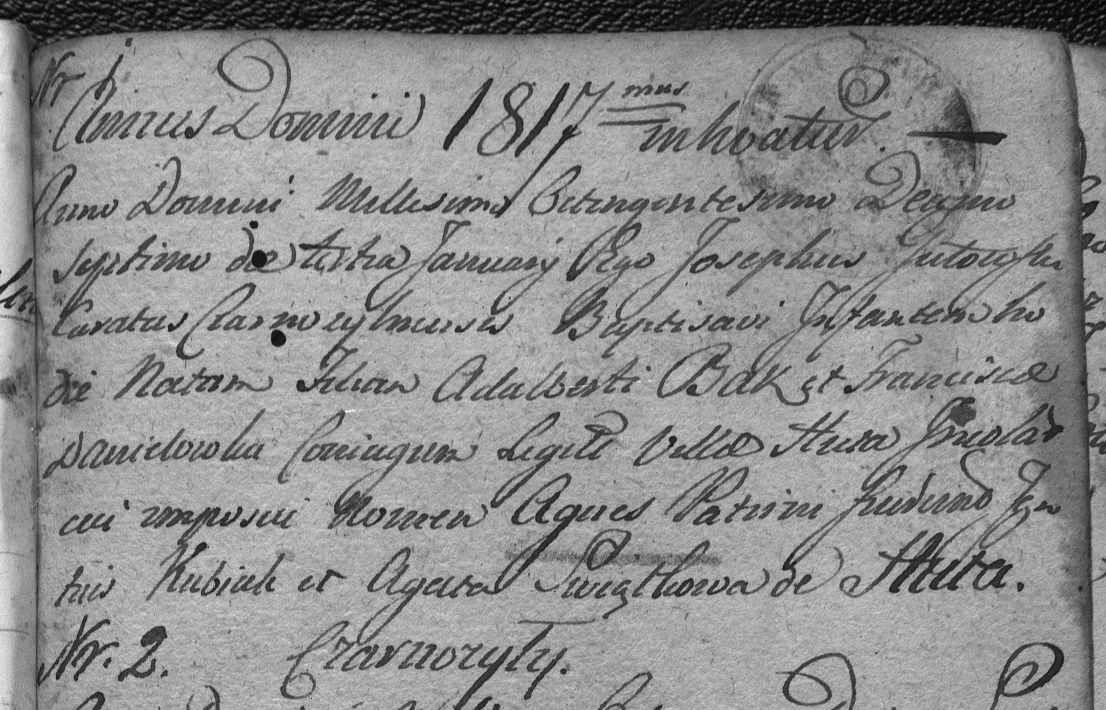 Nr 1.
Annus Domini 1817mus inhoatur.
Anno Domini Millesimo Octingentesimo Decimo
septimo die tertia January Ego Josephus
Curatus Czarnozylnensis Baptisavi Infantem ho
die Natam Filiam Adalberti Bąk et Francisca
Danielowka Coniugum Legite Villæ Huta Incolar
cui imposui Nomen Agnes Patrini fuerund Ign
tius Kubiak et Agata Swiątkowa de Huta.
Nr. 2. Czarnozyly.